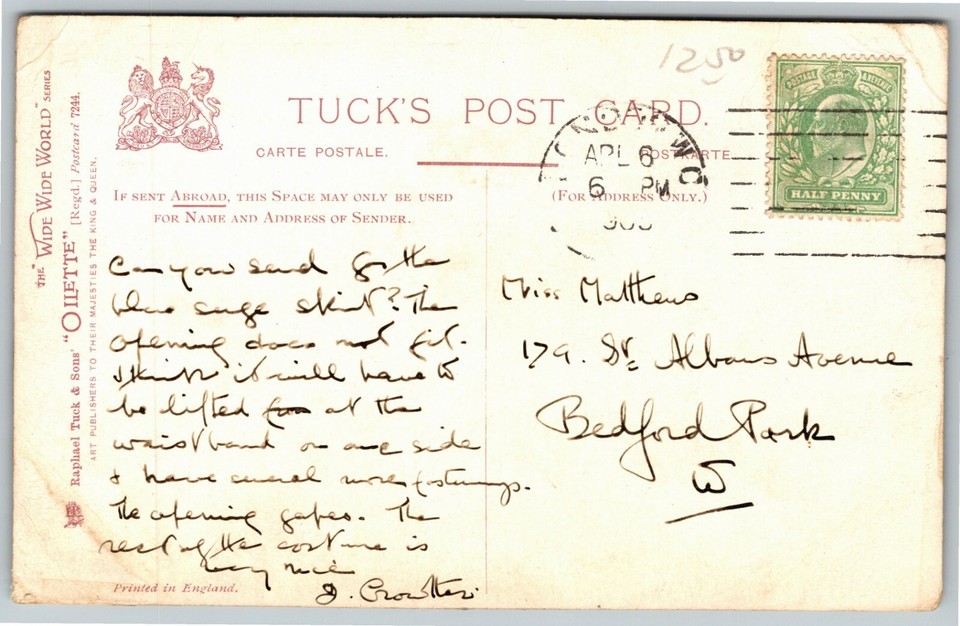 THE "WIDE WIDE WORLD" SERIES
Raphael Tuck & Sons' "OILETTE" [Regd.] Postcard 7244.
ART PUBLISHERS TO THEIR MAJESTIES THE KING & QUEEN.
TUCK'S POST CARD.
CARTE POSTALE.
POSTKARTE
IF SENT ABROAD, THIS SPACE MAY ONLY BE USED
FOR NAME AND ADDRESS OF SENDER.
(FOR ADDRESS ONLY.)
1250
LONDON W.C
APL 6
6 PM
POSTAGE
HALF PENNY
Can you send for the
blue serge skirt? The
opening does not fit.
I think it will have to
be lifted at the
waistband on one side
& have several more fastenings.
The opening gapes. The
rest of the costume is
very nice
J. Crowther
Miss Matthews
179. St. Albans Avenue
Bedford Park
W
Printed in England.